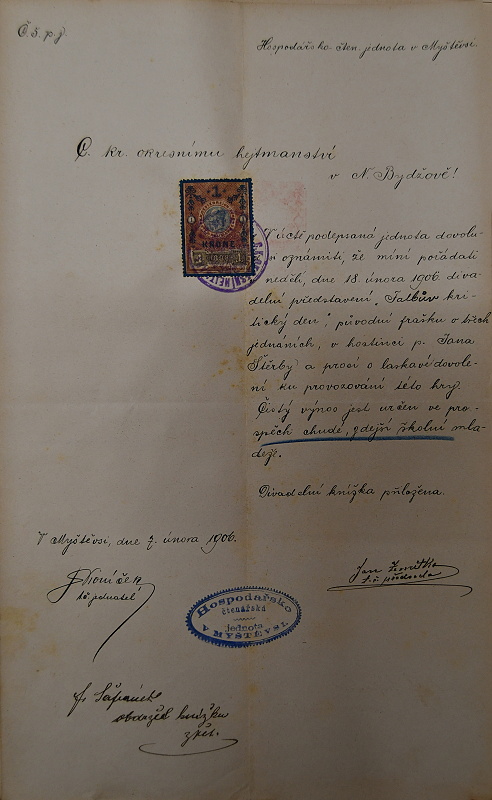 Č 5. p. j.
Hospodářsko-čten. jednota v Myštěvsi.
C. kr. okresnímu hejtmanství
v N. Bydžově!
1
KRONE
1898
V úctě podepsaná jednota dovolu-
oznámiti, že míní pořádati
neděli, dne 18. února 1906 diva-
delní představení „Tatbův kri-
tický den", původní frašku o třech
jednáních, v hostinci p. Jana
Štěrby a prosí o laskavé dovole-
ní ku provozování této hry.
Čistý výnos jest určen ve pro-
spěch chudé, zdejší školní mlá-
deže.
Divadelní knížka přiložena.
V Myštěvsi, dne 7. února 1906.
t. č. jednatel
Jan
t. č. předseda
Hospodářsko
čtenářská
jednota
V MYŠTĚVSI.
obdržel knížku
zpět.